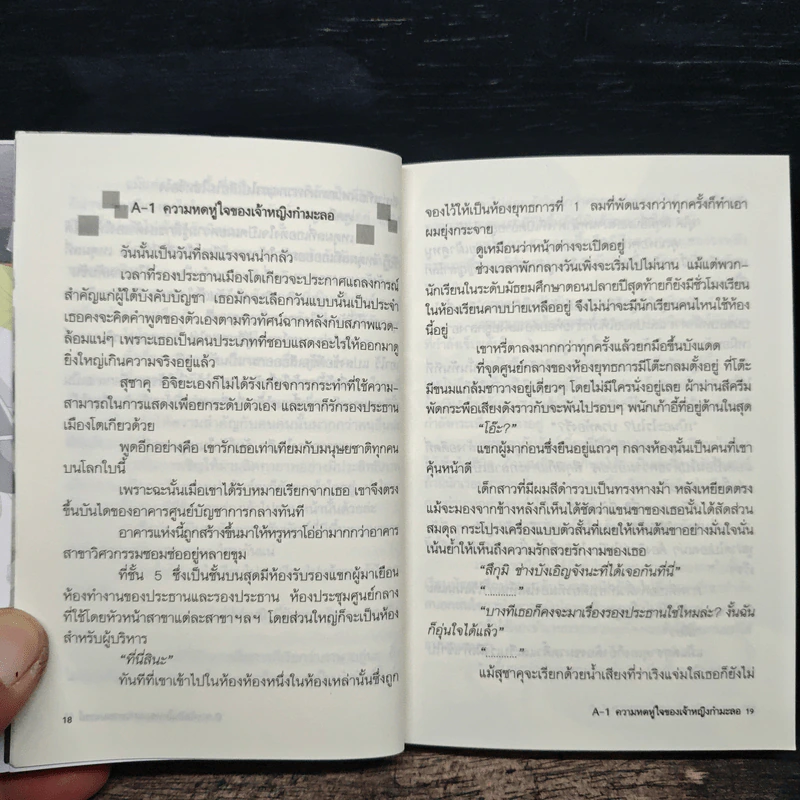 A-1 ความหดหู่ใจของเจ้าหญิงกำมะลอ
วันนั้นเป็นวันที่ลมแรงจนน่ากลัว
เวลาที่รองประธานเมืองโตเกียวจะประกาศแถลงการณ์
สำคัญแก่ผู้ใต้บังคับบัญชา เธอมักจะเลือกวันแบบนั้นเป็นประจำ
เธอคงจะคิดคำพูดของตัวเองตามทิวทัศน์ฉากหลังกับสภาพแวด-
ล้อมแน่ๆ เพราะเธอเป็นคนประเภทที่ชอบแสดงอะไรให้ออกมาดู
ยิ่งใหญ่เกินความจริงอยู่แล้ว
สุซาคุ อิจิยะเองก็ไม่ได้รังเกียจการกระทำที่ใช้ความ-
สามารถในการแสดงเพื่อยกระดับตัวเอง และเขาก็รักรองประธาน
เมืองโตเกียวด้วย
พูดอีกอย่างคือ เขารักเธอเท่าเทียมกับมนุษยชาติทุกคน
บนโลกใบนี้
เพราะฉะนั้นเมื่อเขาได้รับหมายเรียกจากเธอ เขาจึงตรง
ขึ้นบันไดของอาคารศูนย์บัญชาการกลางทันที
อาคารแห่งนี้ถูกสร้างขึ้นมาให้หรูหราโอ่อ่ามากกว่าอาคาร
สาขาวิศวกรรมซอมซ่ออยู่หลายขุม
ที่ชั้น 5 ซึ่งเป็นชั้นบนสุดมีห้องรับรองแขกผู้มาเยือน
ห้องทำงานของประธานและรองประธาน ห้องประชุมศูนย์กลาง
ที่ใช้โดยหัวหน้าสาขาแต่ละสาขาฯลฯ โดยส่วนใหญ่ก็จะเป็นห้อง
สำหรับผู้บริหาร
“ที่นี่สินะ”
ทันทีที่เขาเข้าไปในห้องห้องหนึ่งในห้องเหล่านั้นซึ่งถูก
18
จองไว้ให้เป็นห้องยุทธการที่ 1 ลมที่พัดแรงกว่าทุกครั้งก็ทำเอา
ผมยุ่งกระจาย
ดูเหมือนว่าหน้าต่างจะเปิดอยู่
ช่วงเวลาพักกลางวันเพิ่งจะเริ่มไปไม่นาน แม้แต่พวก-
นักเรียนในระดับมัธยมศึกษาตอนปลายปีสุดท้ายก็ยังมีชั่วโมงเรียน
ในห้องเรียนคาบบ่ายเหลืออยู่ จึงไม่น่าจะมีนักเรียนคนไหนใช้ห้อง
นี้อยู่
เขาหรี่ตาลงมากกว่าทุกครั้งแล้วยกมือขึ้นบังแดด
ที่จุดศูนย์กลางของห้องยุทธการมีโต๊ะกลมตั้งอยู่ ที่โต๊ะ
มีขนมแกล้มชาวางอยู่เดี่ยวๆ โดยไม่มีใครนั่งอยู่เลย ผ้าม่านสีครีม
พัดกระพือเสียงดังราวกับจะพันไปรอบๆ พนักเก้าอี้ที่อยู่ด้านในสุด
“โอ๊ะ?”
แขกผู้มาก่อนซึ่งยืนอยู่แถวๆ กลางห้องนั้นเป็นคนที่เขา
คุ้นหน้าดี
เด็กสาวที่มีผมสีดำรวบเป็นทรงหางม้า หลังเหยียดตรง
แม้จะมองจากข้างหลังก็เห็นได้ชัดว่าแขนขาของเธอนั้นได้สัดส่วน
สมดุล กระโปรงเครื่องแบบตัวสั้นที่เผยให้เห็นต้นขาอย่างมั่นใจนั่น
เน้นย้ำให้เห็นถึงความรักสวยรักงามของเธอ
“สึกุมิ ช่างบังเอิญจังนะที่ได้เจอกันที่นี่”
“...........”
“บางทีเธอก็คงจะมาเรื่องรองประธานใช่ไหมล่ะ? งั้นฉัน
ก็อุ่นใจได้แล้ว”
“...........”
แม้สุซาคุจะเรียกด้วยน้ำเสียงที่ร่าเริงแจ่มใสเธอก็ยังไม่
A-1 ความหดหู่ใจของเจ้าหญิงกำมะลอ 19